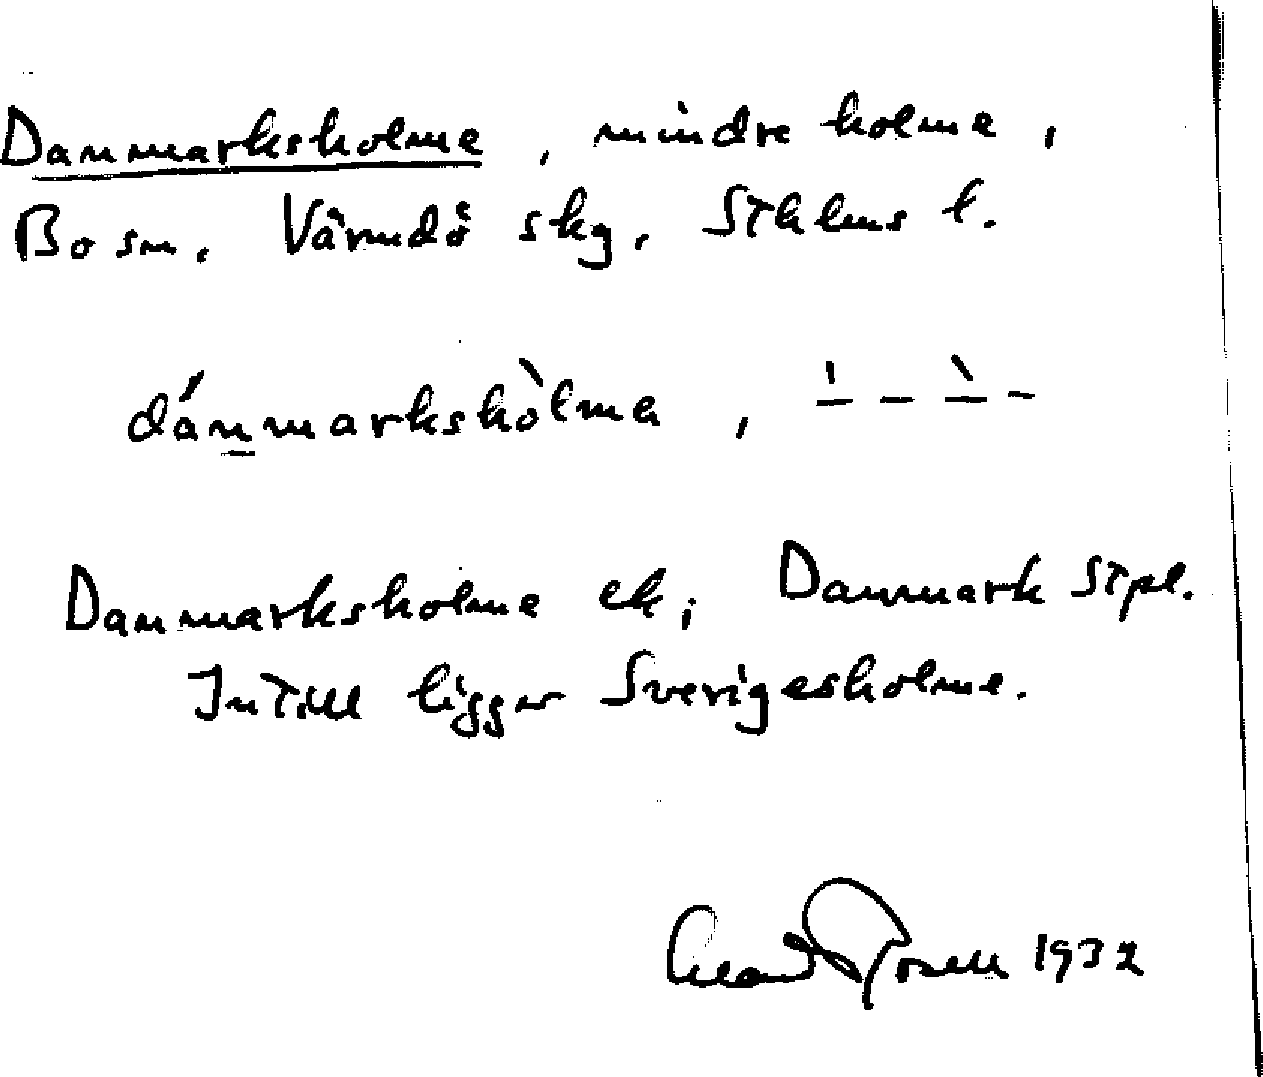 Danmarksholme, mindre holme,
Bo sn. Värmdö skg, Sthlms l.
dánmarkshòlma,
Danmarksholme ek; Danmark Stpl.
Intill ligger Sverigesholme.
1932